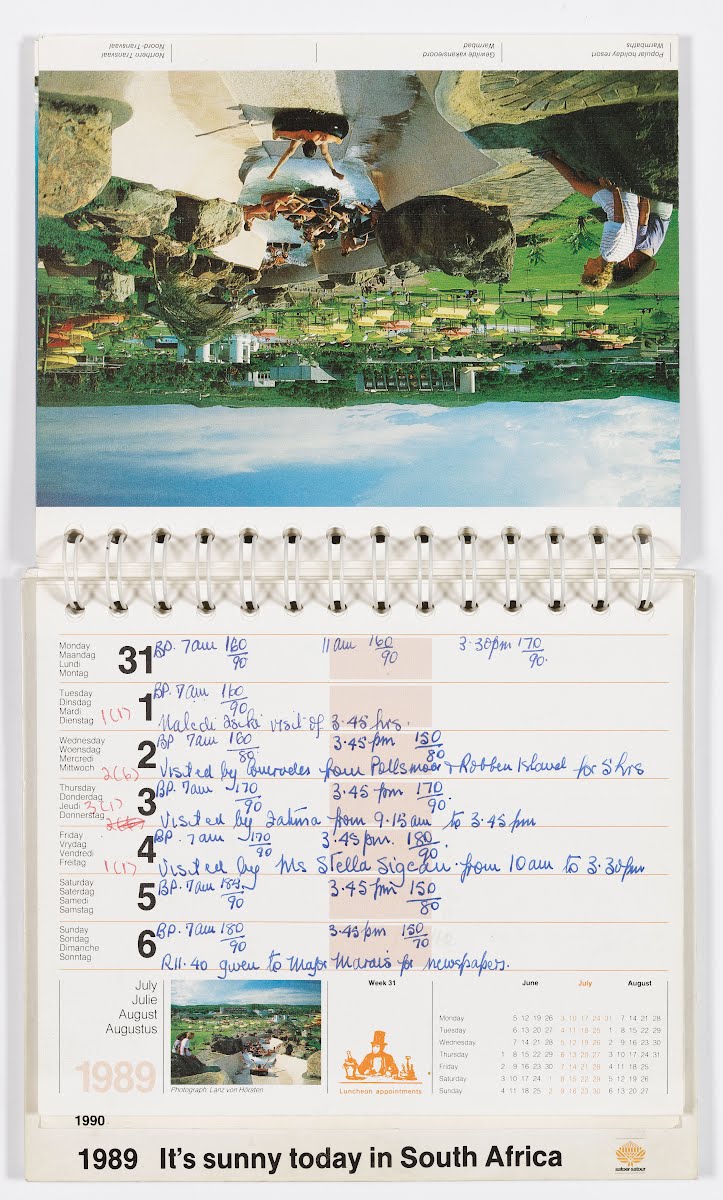 Northern Transvaal
Noord-Transvaal
Gewilde vakansieoord
Warmbad
Popular holiday resort
Warmbaths
Monday
Maandag
Lundi
Montag
31
BP. 7am 160/90
11am 160/90
3.30pm 170/90.
Tuesday
Dinsdag
Mardi
Dienstag
1(1)
1
BP. 7am 160/90
Naledi visit of 3.45 hrs.
Wednesday
Woensdag
Mercredi
Mittwoch
2(6)
2
BP 7am 160/80
3.45pm 150/80
Visited by comrades from Pollsmoor & Robben Island for 5 hrs
Thursday
Donderdag
Jeudi
Donnerstag
3(1)
3
BP. 7am 170/90
3.45 pm 170/90.
Visited by Fatima from 9.15am to 3.45pm
Friday
Vrydag
Vendredi
Freitag
1(1)
4
BP. 7am 170/90
3.45pm. 180/90.
Visited by Ms Stella Sigcau from 10am to 3.30pm
Saturday
Saterdag
Samedi
Samstag
5
BP. 7am /90
3.45pm 150/80
Sunday
Sondag
Dimanche
Sonntag
6
BP. 7am 180/90
3.45pm 150/70
R11.40 given to Major Marais for newspapers.
July
Julie
August
Augustus
1989
Photograph: Lanz von Hörsten
Week 31
Luncheon appointments
June July August
Monday 5 12 19 26 3 10 17 24 31 7 14 21 28
Tuesday 6 13 20 27 4 11 18 25 1 8 15 22 29
Wednesday 7 14 21 28 5 12 19 26 2 9 16 23 30
Thursday 1 8 15 22 29 6 13 20 27 3 10 17 24 31
Friday 2 9 16 23 30 7 14 21 28 4 11 18 25
Saturday 3 10 17 24 1 8 15 22 29 5 12 19 26
Sunday 4 11 18 25 2 9 16 23 30 6 13 20 27
1990
1989 It's sunny today in South Africa
satoer-satour